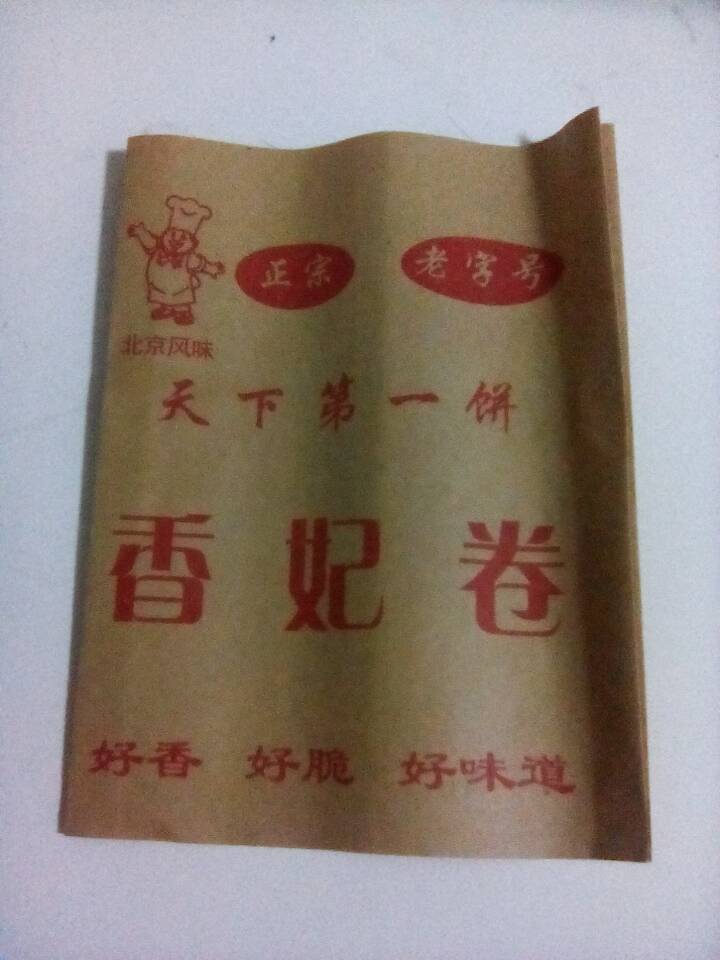 正宗 老字号
北京风味
天下第一饼
香妃卷
好香 好脆 好味道